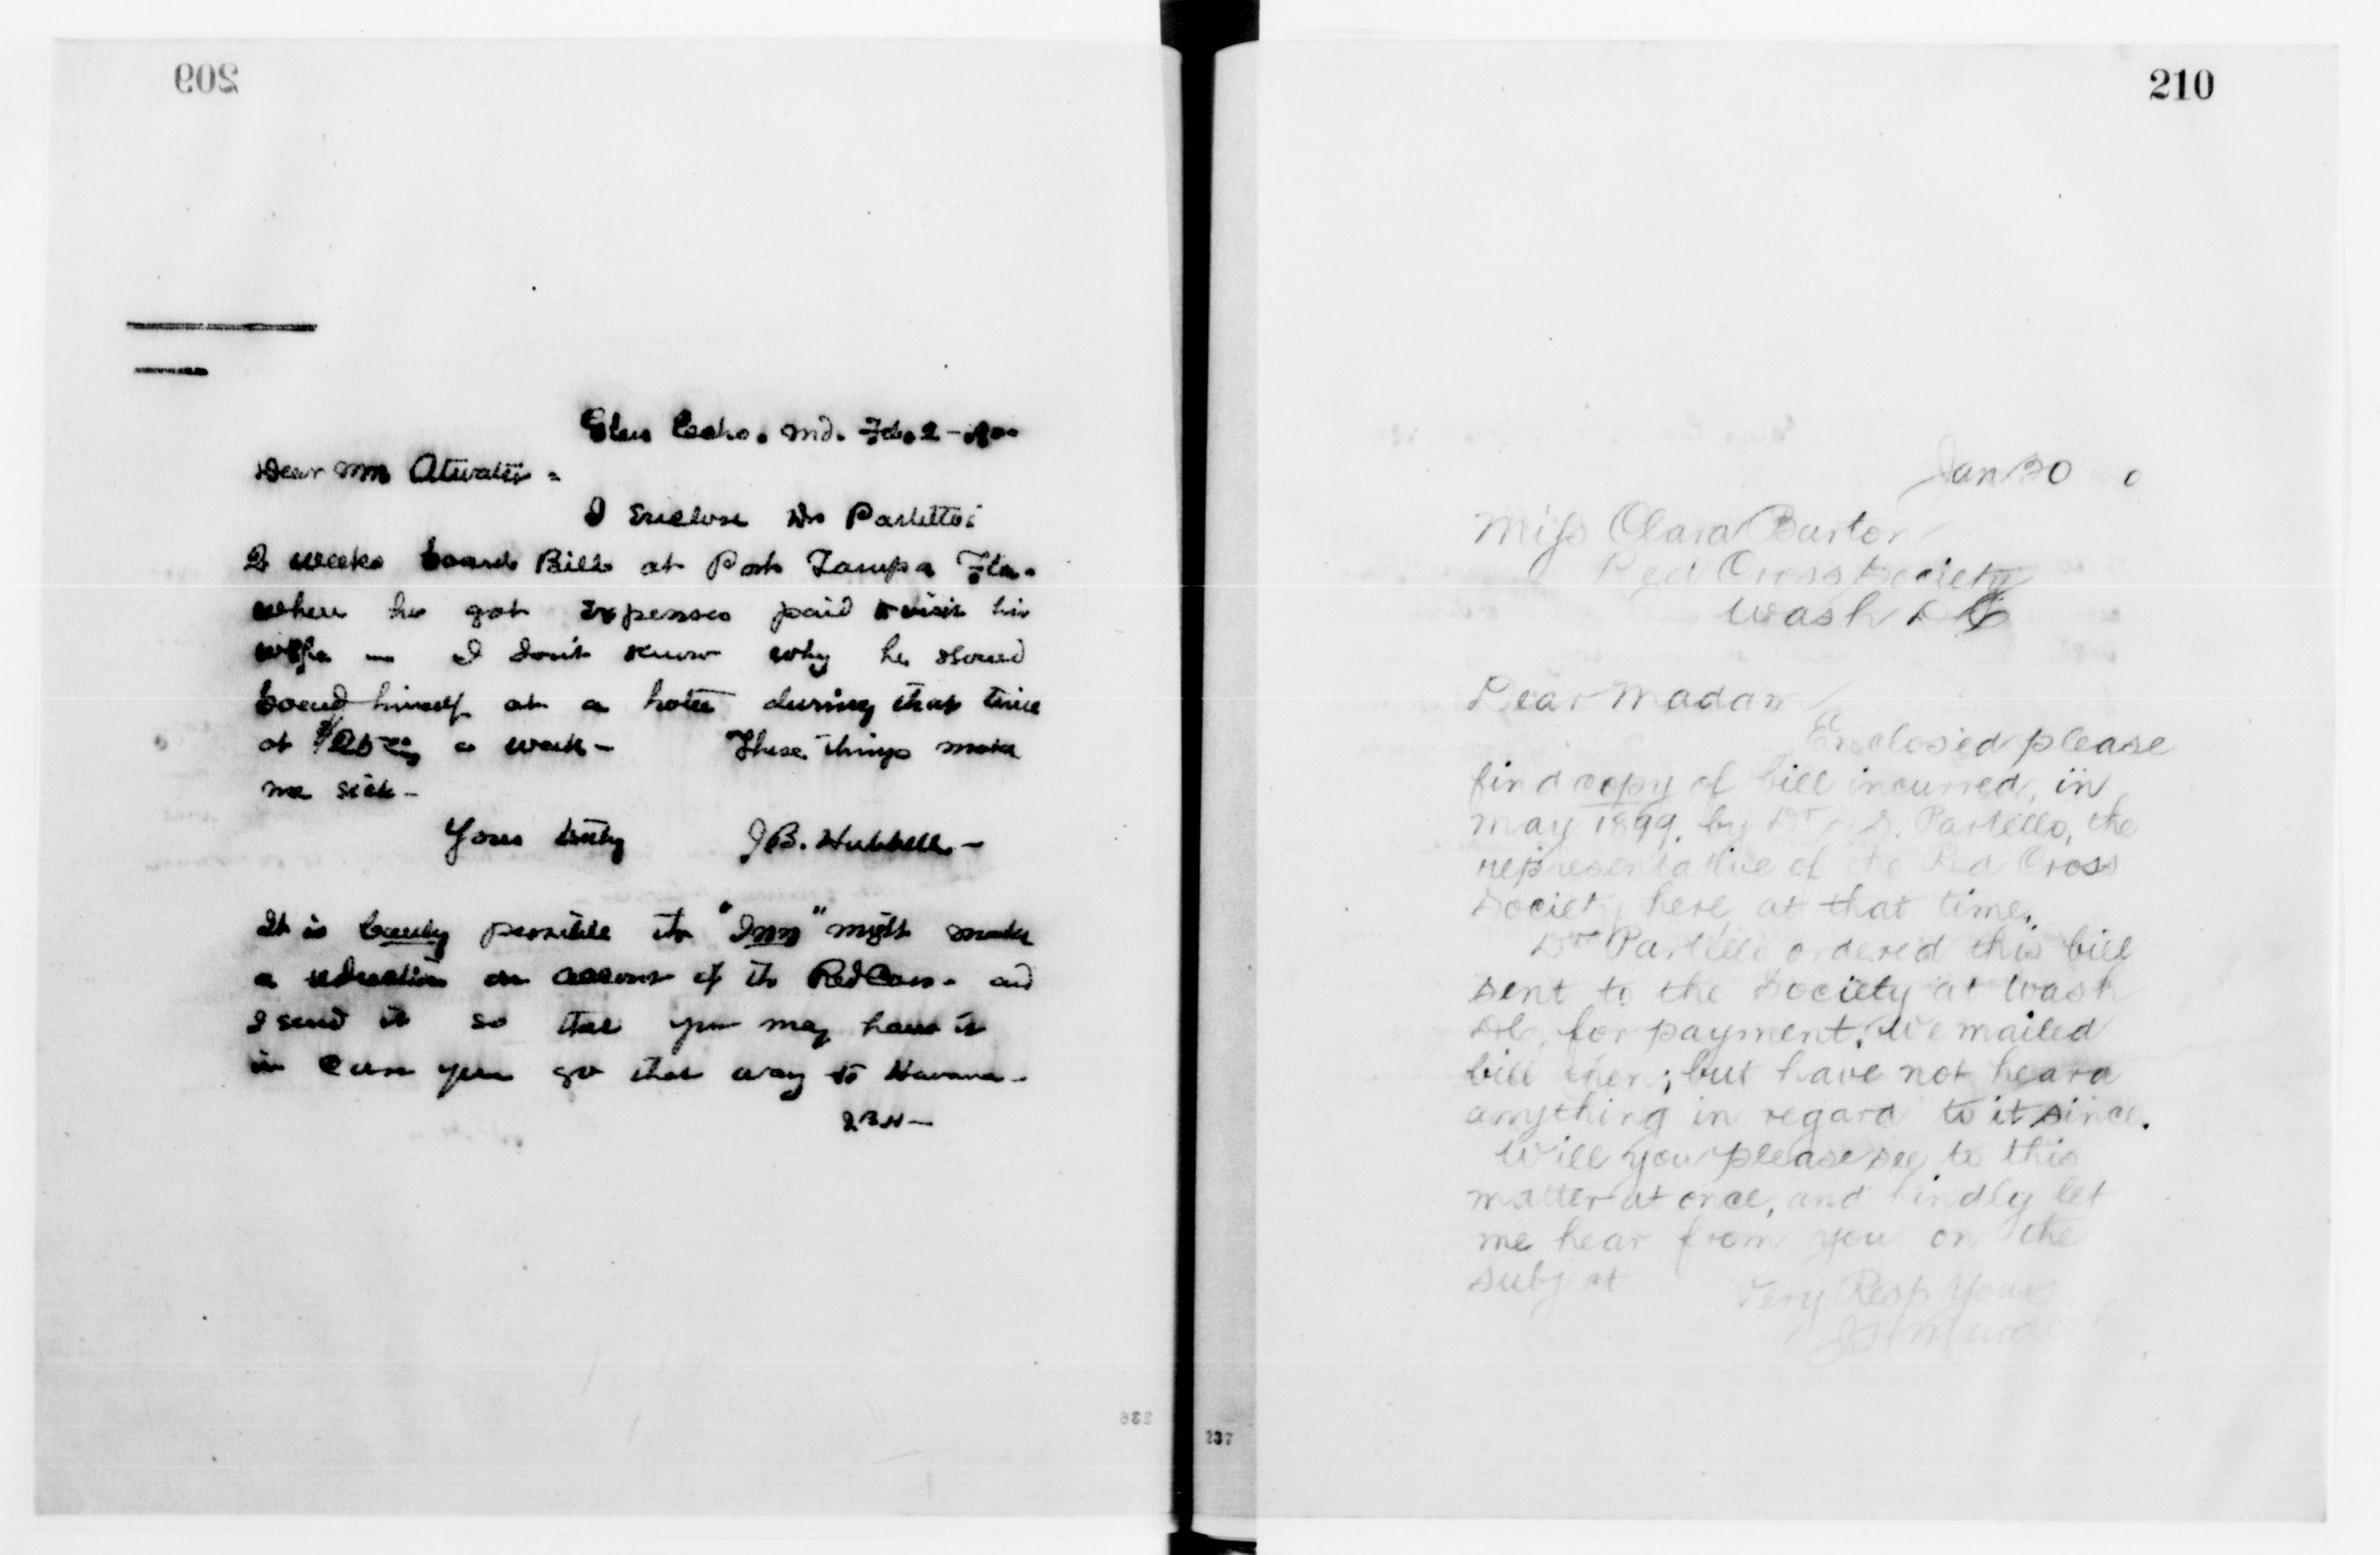 209
Glen Echo. Md. Feb. 2-1900
Dear Mr Atwater =
I enclose Dr Partello's
2 weeks board Bill at Port Tampa Fla.
where he got expenses paid to visit his
wife — I don't know why he should
board himself at a hotel during that time
at $25 a week — These things make
me sick —
Yours truly J.B. Hubbell —
It is barely possible the "Inn" might make
a reduction on account of the Red Cross - and
I send it so that you may have it
in case you go that way to Havana -
JBH —
236
210
Jan 30 0
Miss Clara Barton
Red Cross Society
Wash DC
Dear Madam
Enclosed please
find copy of bill incurred, in
May 1899, by Dr S. Partello, the
representative of the Red Cross
Society here at that time.
Dr Partello ordered this bill
sent to the Society at Wash
DC, for payment. We mailed
bill then; but have not heard
anything in regard to it since.
Will you please see to this
matter at once, and kindly let
me hear from you on the
subject
Very Resp Yours
237